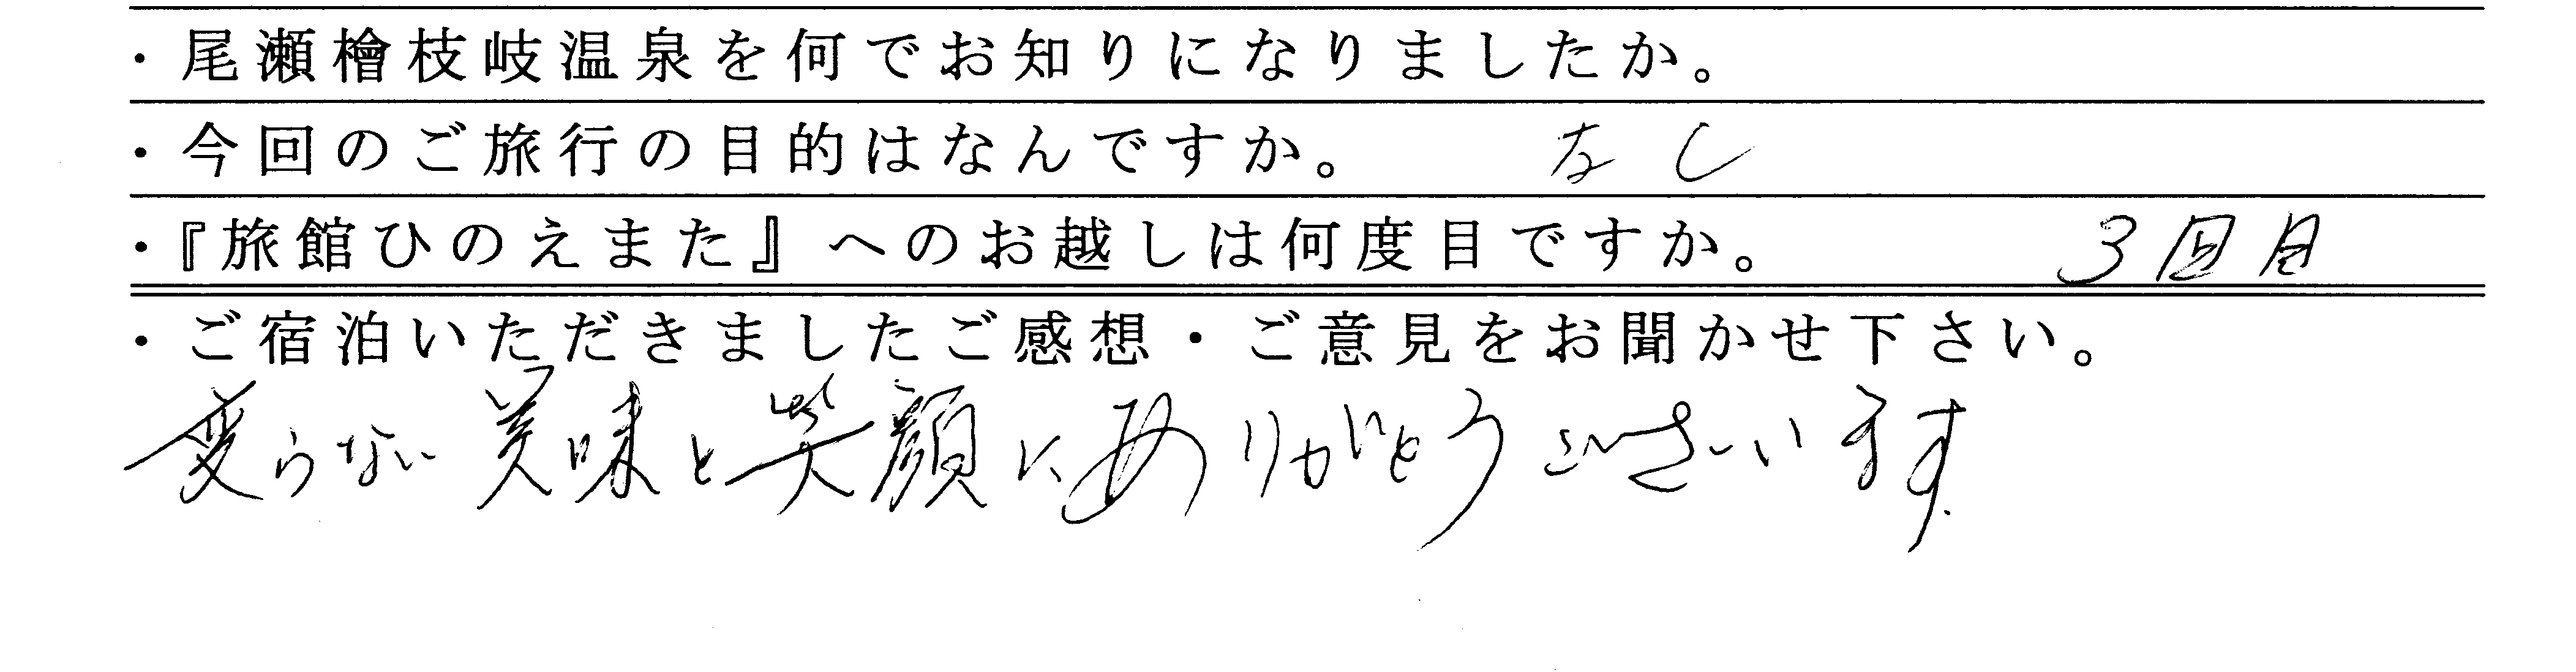 ・尾瀬檜枝岐温泉を何でお知りになりましたか。
・今回のご旅行の目的はなんですか。 なし
・『旅館ひのえまた』へのお越しは何度目ですか。 3回目
・ご宿泊いただきましたご感想・ご意見をお聞かせ下さい。
変らない美味と笑顔にありがとうございます.